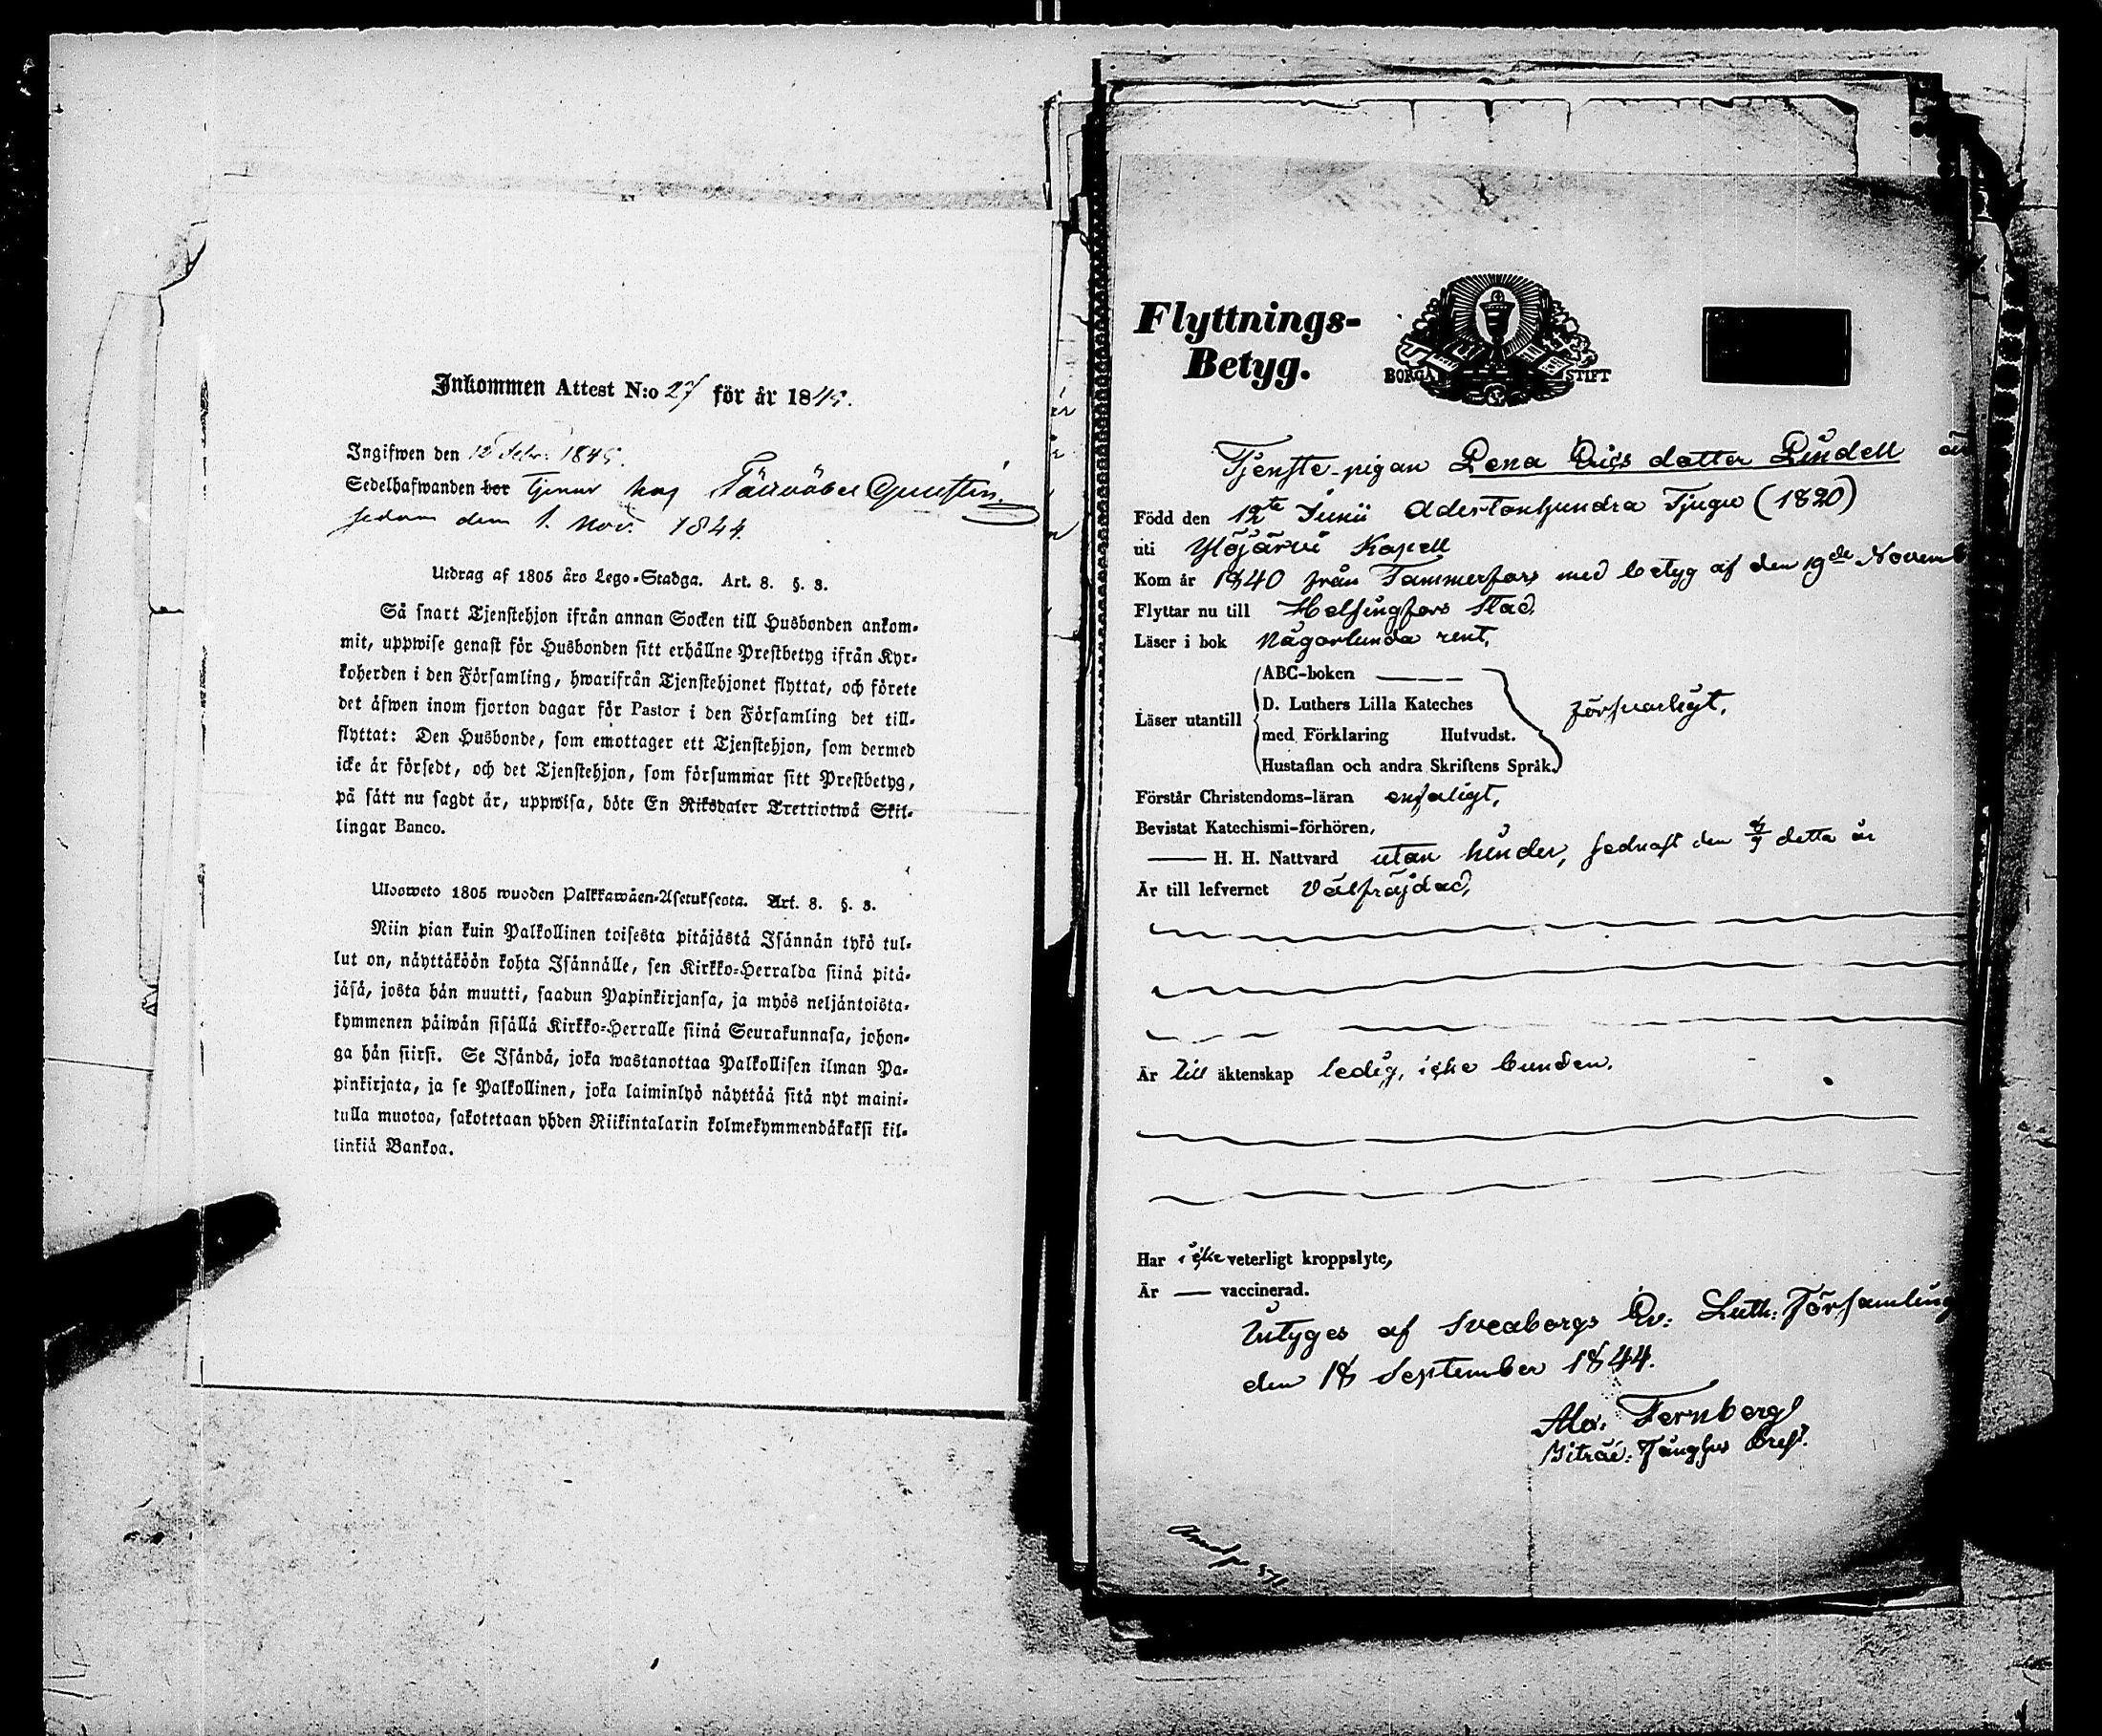 Inkommen Attest N:o 27 för år 1845.
Ingifwen den 12 Febr: 1845.
Sedelhafwanden bor tjenar hos
sedan den 1. Nov. 1844.
Utdrag af 1805 års Lego-Stadga. Art. 8. §. 3.
Så snart Tjenstehjon ifrån annan Socken till Husbonden ankom-
mit, uppwise genast för Husbonden sitt erhållne Prestbetyg ifrån Kyr-
koherden i den Församling, hwarifrån Tjenstehjonet flyttat, och förete
det äfwen inom fjorton dagar för Pastor i den Församling det till-
flyttat: Den Husbonde, som emottager ett Tjenstehjon, som dermed
icke är försedt, och det Tjenstehjon, som försummar sitt Prestbetyg,
på sätt nu sagdt är, uppwisa, böte En Riksdaler Trettiotwå Skil-
lingar Banco.
Ulosweto 1805 wuoden Palkkawäen-Asetuksesta. Art. 8. §. 3.
Niin pian kuin Palkollinen toisesta pitäjästä Isännän tykö tul-
lut on, näyttäköön kohta Isännälle, sen Kirkko-Herralda siinä pitä-
jäsä, josta hän muutti, saadun Papinkirjansa, ja myös neljäntoista-
kymmenen päiwän sisällä Kirkko-Herralle siinä Seurakunnasa, johon-
ga hän siirsi. Se Isändä, joka wastanottaa Palkollisen ilman Pa-
pinkirjata, ja se Palkollinen, joka laiminlyö näyttää sitä nyt maini-
tulla muotoa, sakotetaan yhden Riikintalarin kolmekymmendäkaksi kil-
linkiä Bankoa.
Flyttnings-
Betyg.
BORGÅ STIFT
Tjenste-pigan Lena Erics dotter Lindell är
Född den 12te Junii Adertonhundra Tjugu (1820)
uti Ylöjärvi Kapell
Kom år 1840 från Tammerfors med betyg af den 19de Novemb
Flyttar nu till Helsingfors Stad.
Läser i bok någorlunda rent,
ABC-boken
D. Luthers Lilla Kateches
Läser utantill försvarligt,
med Förklaring Hufvudst.
Hustaflan och andra Skriftens Språk.
Förstår Christendoms-läran enfaligt,
Bevistat Katechismi-förhören,
H. H. Nattvard utan hinder, sednast den detta år
Är till lefvernet Välfräjdad,
Är till äktenskap ledig, icke bunden.
Har icke veterligt kroppslyte,
Är — vaccinerad.
Intyges af Sveaborgs Ev: Luth: Församling
den 18 September 1844.
Alex: Fernberg
Fänghus Prest.
571